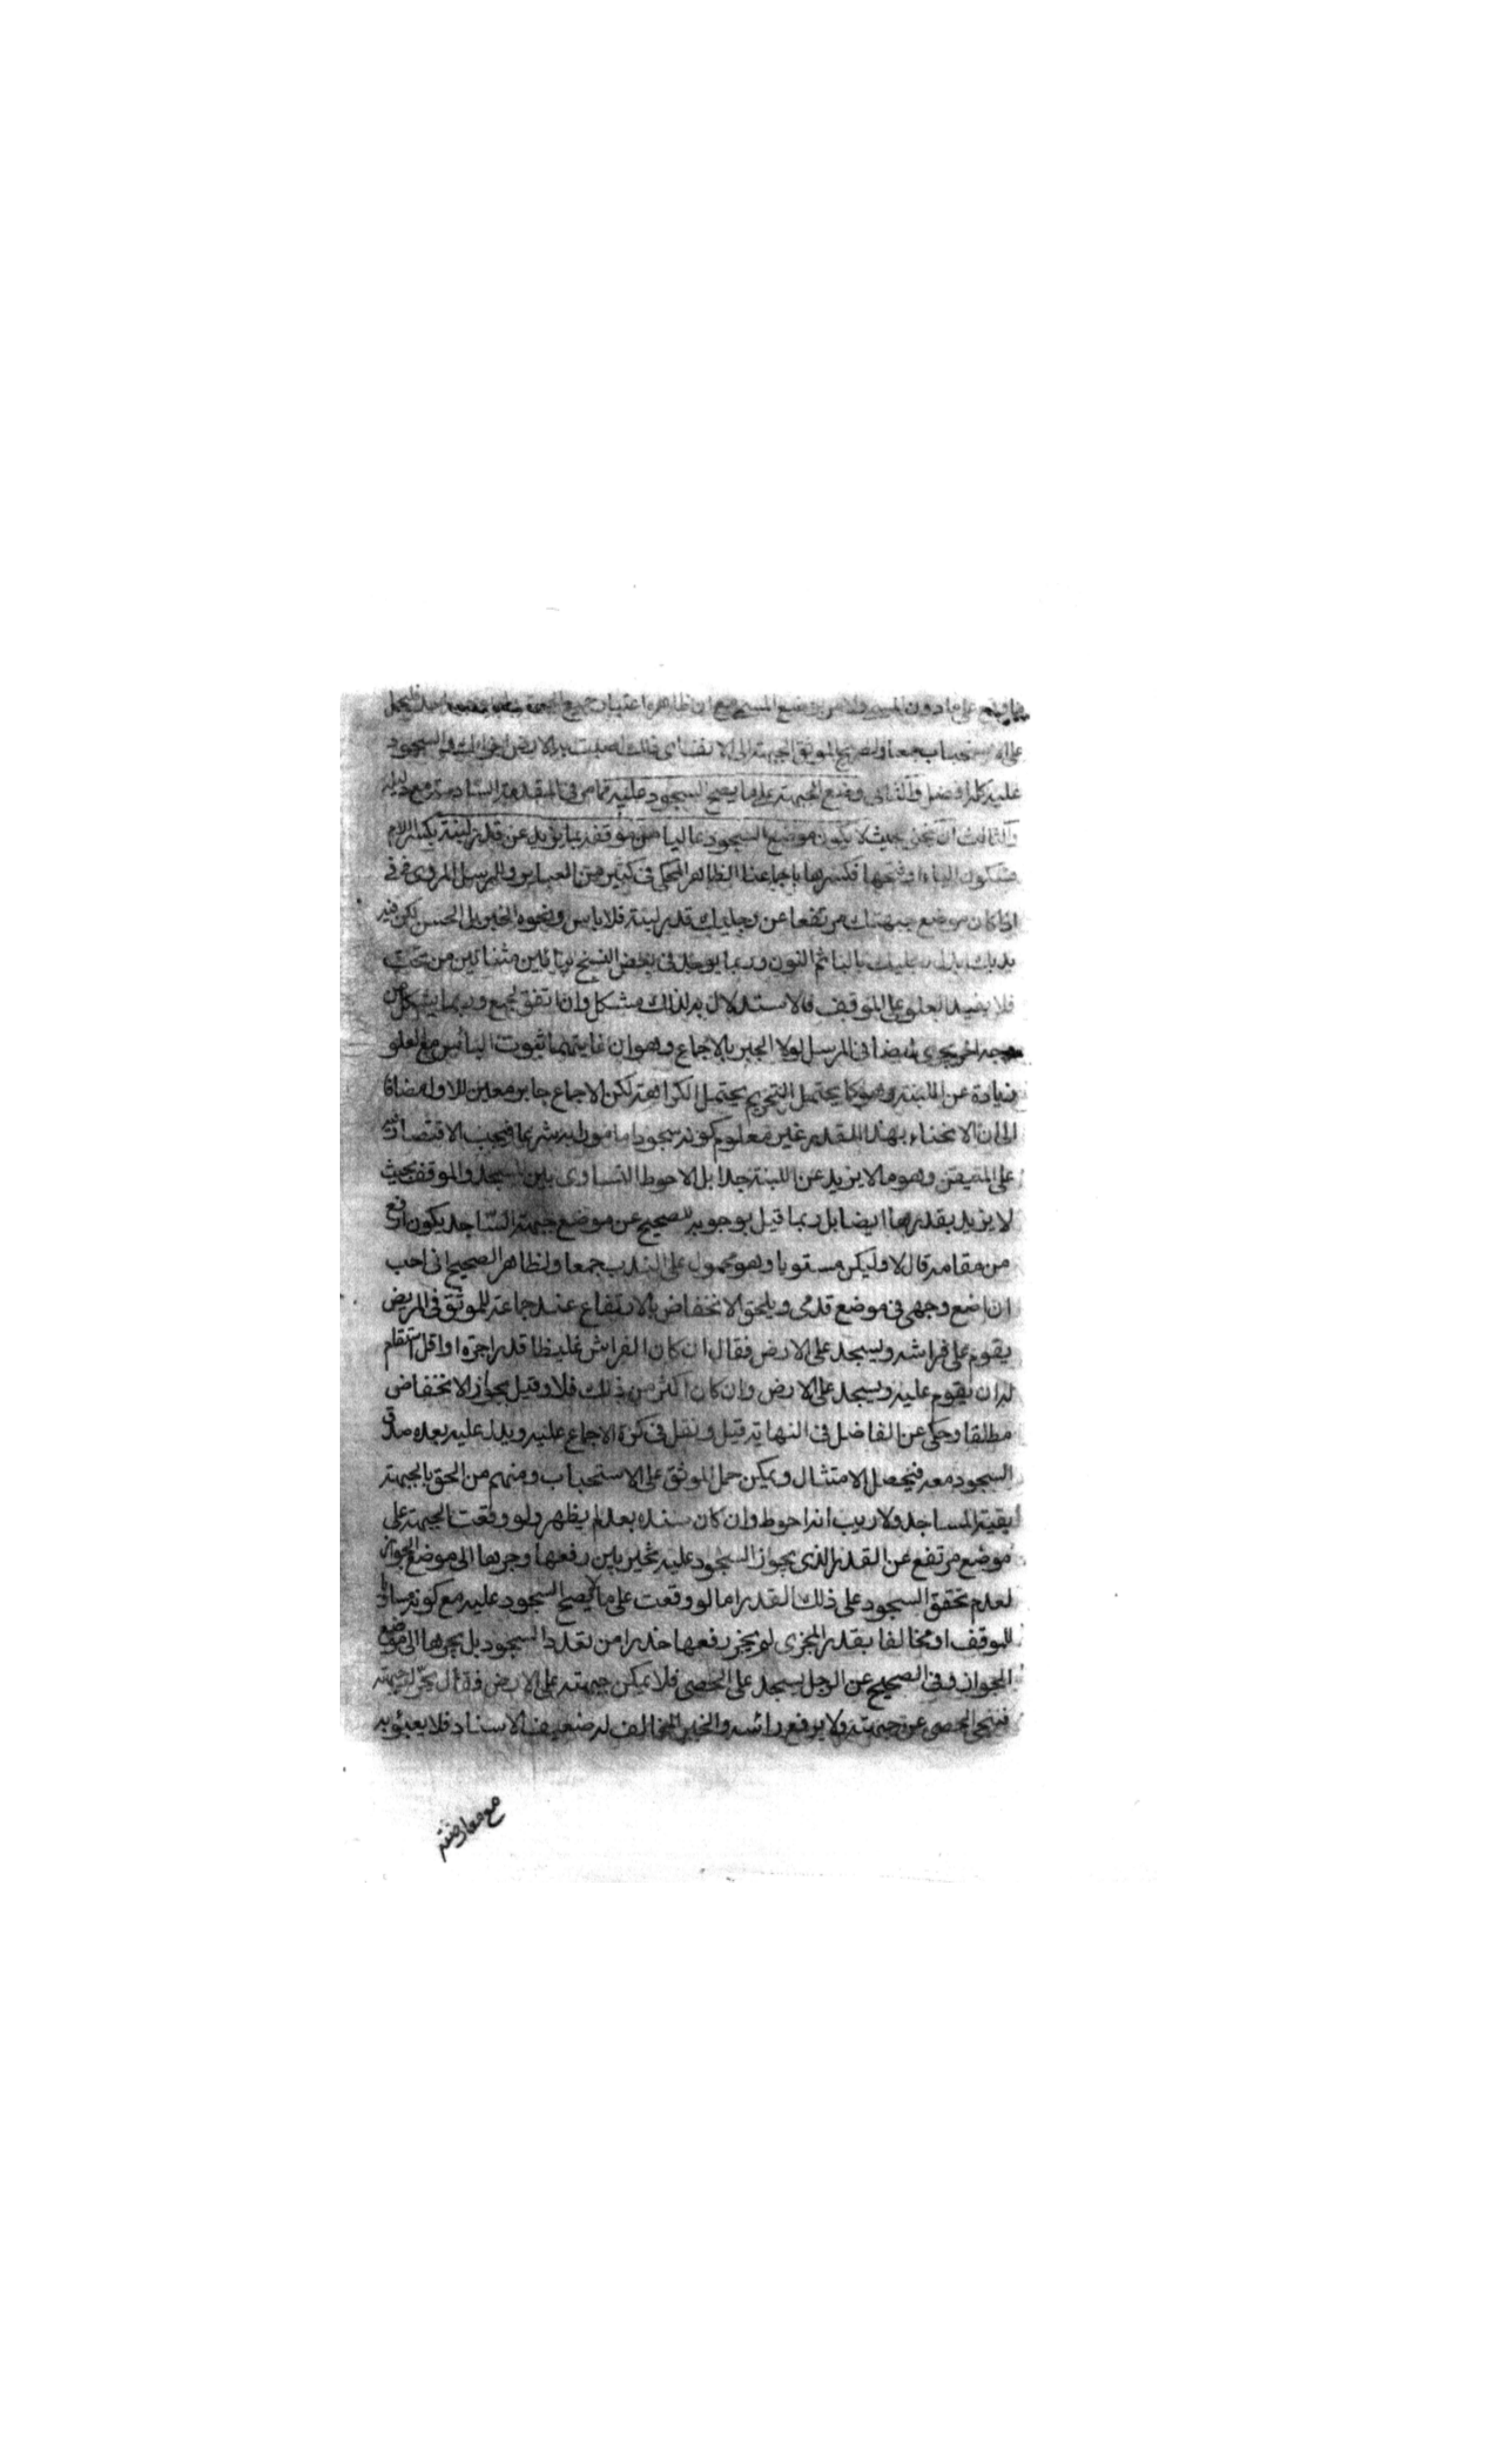 على ما دون المسمى ولا من وضع المسمى مع ان ظاهره اعتبار جميع الجبهة فليحمل
على الاستحباب جمعا ولصريح الموثق الجبهة الى الانف اى ذلك اصبت به الارض اجزأك والسجود
عليه كله افضل والثانى وضع الجبهة على ما يصح السجود عليه كما مر فى المقدمة السادسة مع دليله
والثالث ان ينحنى بحيث لا يكون موضع السجود عاليا من موقفه بما يزيد عن قدر لبنة بكسر اللام
فسكون الباء او فتحها فكسرها باجماعنا الظاهر المحكى فى كثير من العباير وللمرسل المروى فى فى
اذا كان موضع جبهتك مرتفعا عن رجليك قدر لبنة فلا باس ونحوه الخبر بل الحسن لكن فيه
يديك بدل رجليك بالبا ثم النون وربما يوجد فى بعض النسخ بيائين مثناتين من تحت
فلا يفيد العلو على الموقف فالاستدلال به لذلك مشكل وان اتفق لجمع وربما يشكل من
وجه اخر يجرى ايضا فى المرسل لولا الجبر بالاجماع وهو ان غايتهما ثبوت البأس مع العلو
زيادة عن اللبنة وهو كما يحتمل التحريم يحتمل الكراهة لكن الاجماع جابر ومعين للاول مضافا
الى ان الانحناء بهذا المقدار غير معلوم كونه سجودا مامورا به شرعا فيجب الاقتصار فيه
على المتيقن وهو ما لا يزيد عن اللبنة جدا بل الاحوط التساوى بين المسجد والموقف بحيث
لا يزيد بقدرها ايضا بل ربما قيل بوجوبه للصحيح عن موضع جبهة الساجد يكون ارفع
من مقامه قال لا وليكن مستويا وهو محمول على الندب جمعا ولظاهر الصحيح انى احب
ان اضع وجهى فى موضع قدمى ويلحق الانخفاض بالارتفاع عند جماعة للموثق فى المريض
يقوم على فراشه ويسجد على الارض فقال ان كان الفراش غليظا قدر اجرة او اقل استقام
له ان يقوم عليه ويسجد على الارض وان كان اكثر من ذلك فلا وقيل بجواز الانخفاض
مطلقا وحكى عن الفاضل فى النهاية قيل ونقل فى كره الاجماع عليه ويدل عليه بعده صدق
السجود معه فيحصل الامتثال ويمكن حمل الموثق على الاستحباب ومنهم من الحق بالجبهة
بقية المساجد ولا ريب انه احوط وان كان سنده بعد لم يظهر ولو وقعت الجبهة على
موضع مرتفع عن القدر الذى يجوز السجود عليه تخير بين رفعها وجرها الى موضع الجواز
لعدم تحقق السجود على ذلك القدر اما لو وقعت على ما لا يصح السجود عليه مع كونه مساويا
للموقف او مخالفا بقدر المجزى لم يجز رفعها حذرا من تعدد السجود بل يجرها الى موضع
الجواز وفى الصحيح عن الرجل يسجد على الحصى فلا يمكن جبهته على الارض فقال يحرك جبهته
فينحى الحصى عن جبهته ولا يرفع رأسه والخبر المخالف له ضعيف الاسناد فلا يعبؤ به
مع معارضته